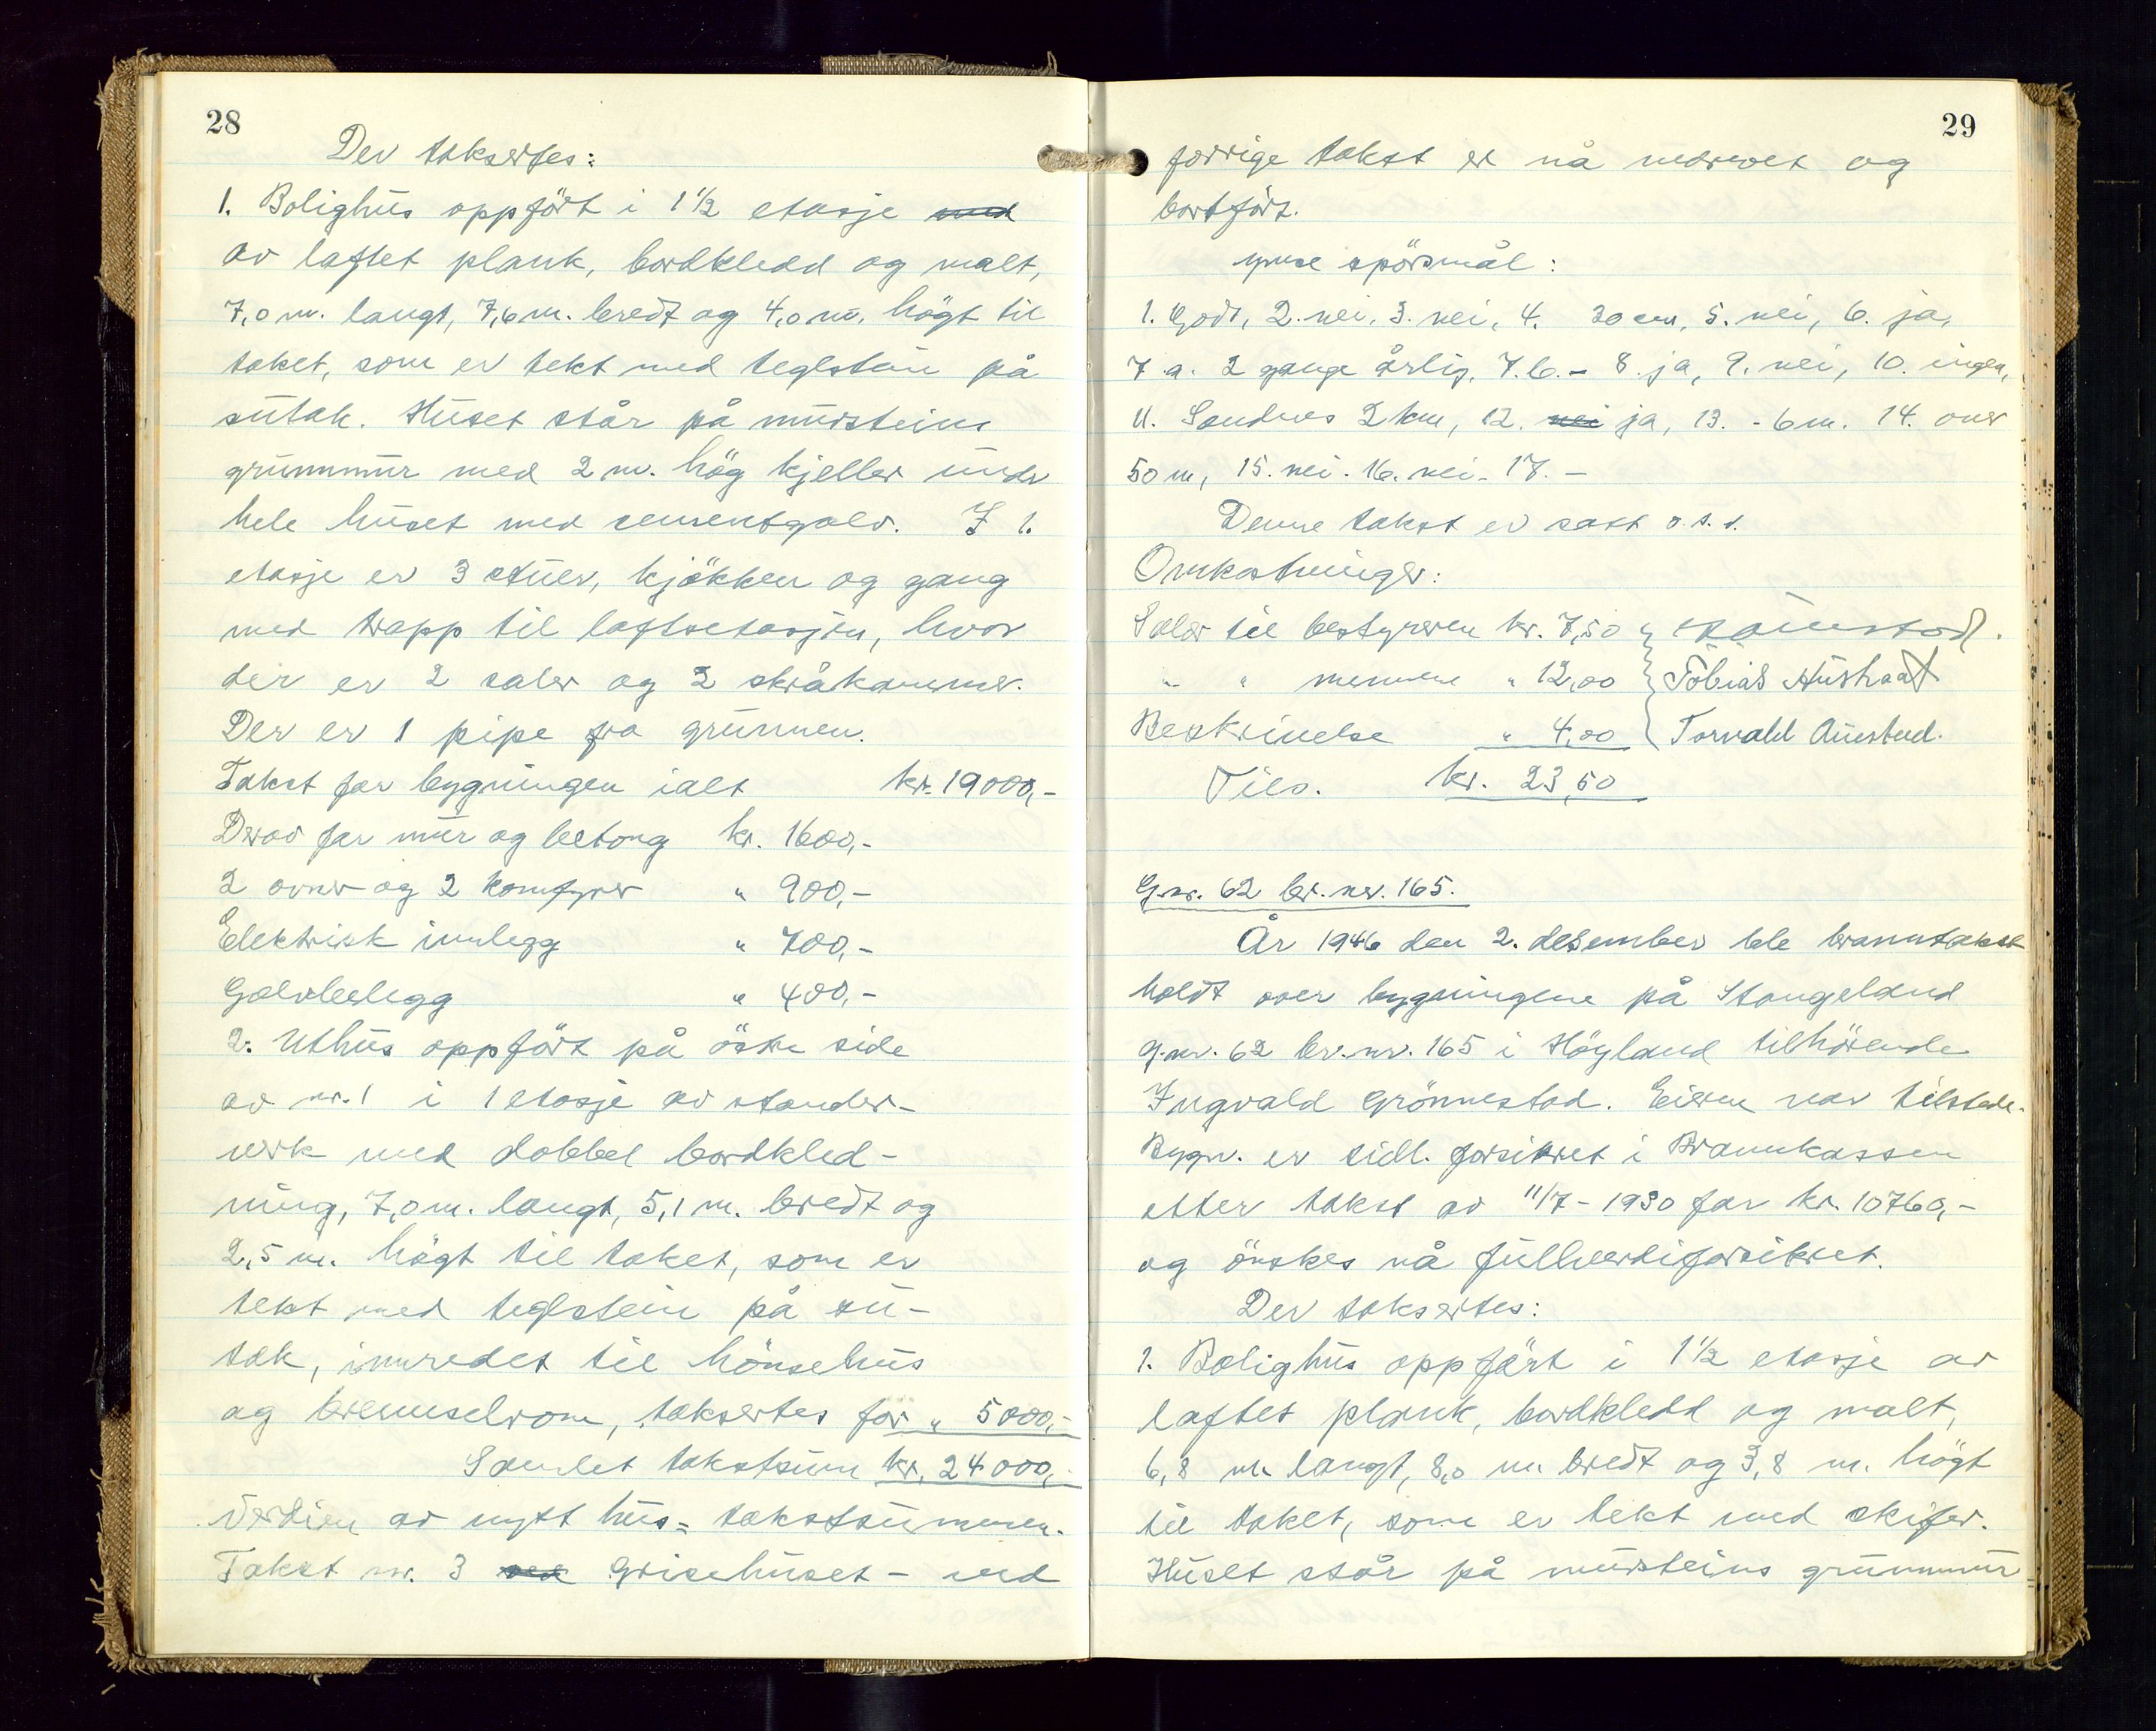 28
Der taksertes:
1. Bolighus oppført i 1 1/2 etasje med
av laftet plank, bordkledd og malt,
7,0 m. langt, 7,6 m. bredt og 4,0 m. högt til
taket, som er tekt med teglstein på
sutak. Huset står på mursteins
grunnmur med 2 m. hög kjeller under
hele huset med sementgolv. I 1.
etasje er 3 stuer, kjökken og gang
med trapp til loftsetasjen, hvor
der er 2 saler og 2 skråkammer.
Der er 1 pipe fra grunnen.
Takst for bygningen ialt kr. 19000,-
Derav for mur og betong kr. 1600,-
2 ovner og 2 komfyrer " 900,-
Elektrisk innlegg " 700,-
Golvbelegg " 400,-
2. Uthus oppfört på östre side
av nr. 1 i 1 etasje av stender-
verk med dobbel bordkled-
ning, 7,0 m. langt, 5,1 m. bredt og
2,5 m. högt til taket, som er
tekt med teglstein på su-
tak, innredet til hönsehus
og brenselrom, taksertes for " 5000,-
Samlet takstsum kr. 24000,-
Verdien av nytt hus = takstsummen.
Takst nr. 3 ved Grisehuset - ved
29
forrige takst er nå nedrevet og
bortfört.
ymse spörsmål:
1. Godt, 2. nei, 3. nei, 4. 30 cm, 5. nei, 6. ja,
7 a. 2 gange årlig, 7.b. - 8. ja, 9. nei, 10. ingen,
11. Sandnes 2 km, 12. nei ja, 13. - 6 m. 14. over
50 m, 15. nei. 16. nei. 17. -
Denne takst er satt o.s.v.
Omkostninger:
Salær til bestyreren kr. 7,50
" " mennene " 12,00 Tobias Austraat
Beskrivelse " 4,00 Torvald Austad.
Tils. kr. 23,50
G.nr. 62 br. nr. 165.
År 1946 den 2. desember ble branntakst
holdt over bygningene på Stangeland
g.nr. 62 br.nr. 165 i Höyland tilhörende
Ingvald Grönnestad. Eieren var tilstede.
Bygn. er tidl. forsikret i Brannkassen
etter takst av 11/7 - 1930 for kr. 10760,-
og önskes nå fullverdiforsikret.
Der taksertes:
1. Bolighus oppfört i 1 1/2 etasje av
laftet plank, bordkledd og malt,
6,8 m. langt, 8,0 m. bredt og 3,8 m. högt
til taket, som er tekt med skifer.
Huset står på mursteins grunnmur